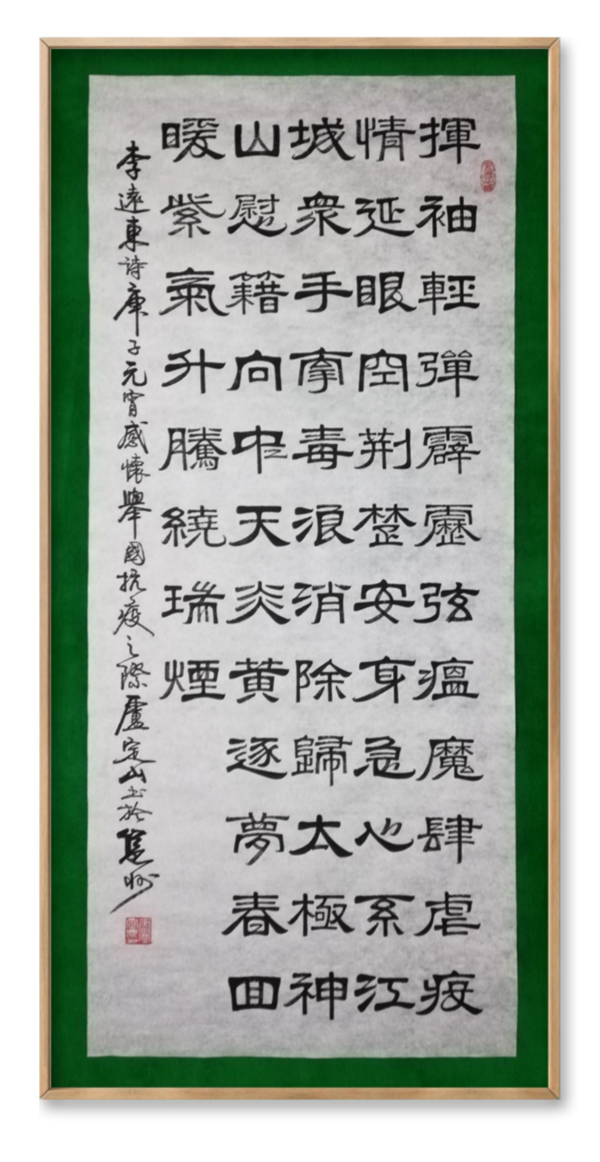 揮袖輕彈霹靂弦瘟魔肆虐疫
情延眼空荆楚安身急心系江
城衆手牽毒浪消除歸太極神
山慰籍向中天炎黄逐夢春回
暖紫氣升騰繞瑞煙
李遠東詩庚子元宵感懷舉國抗疫之際盧定山书於惠州